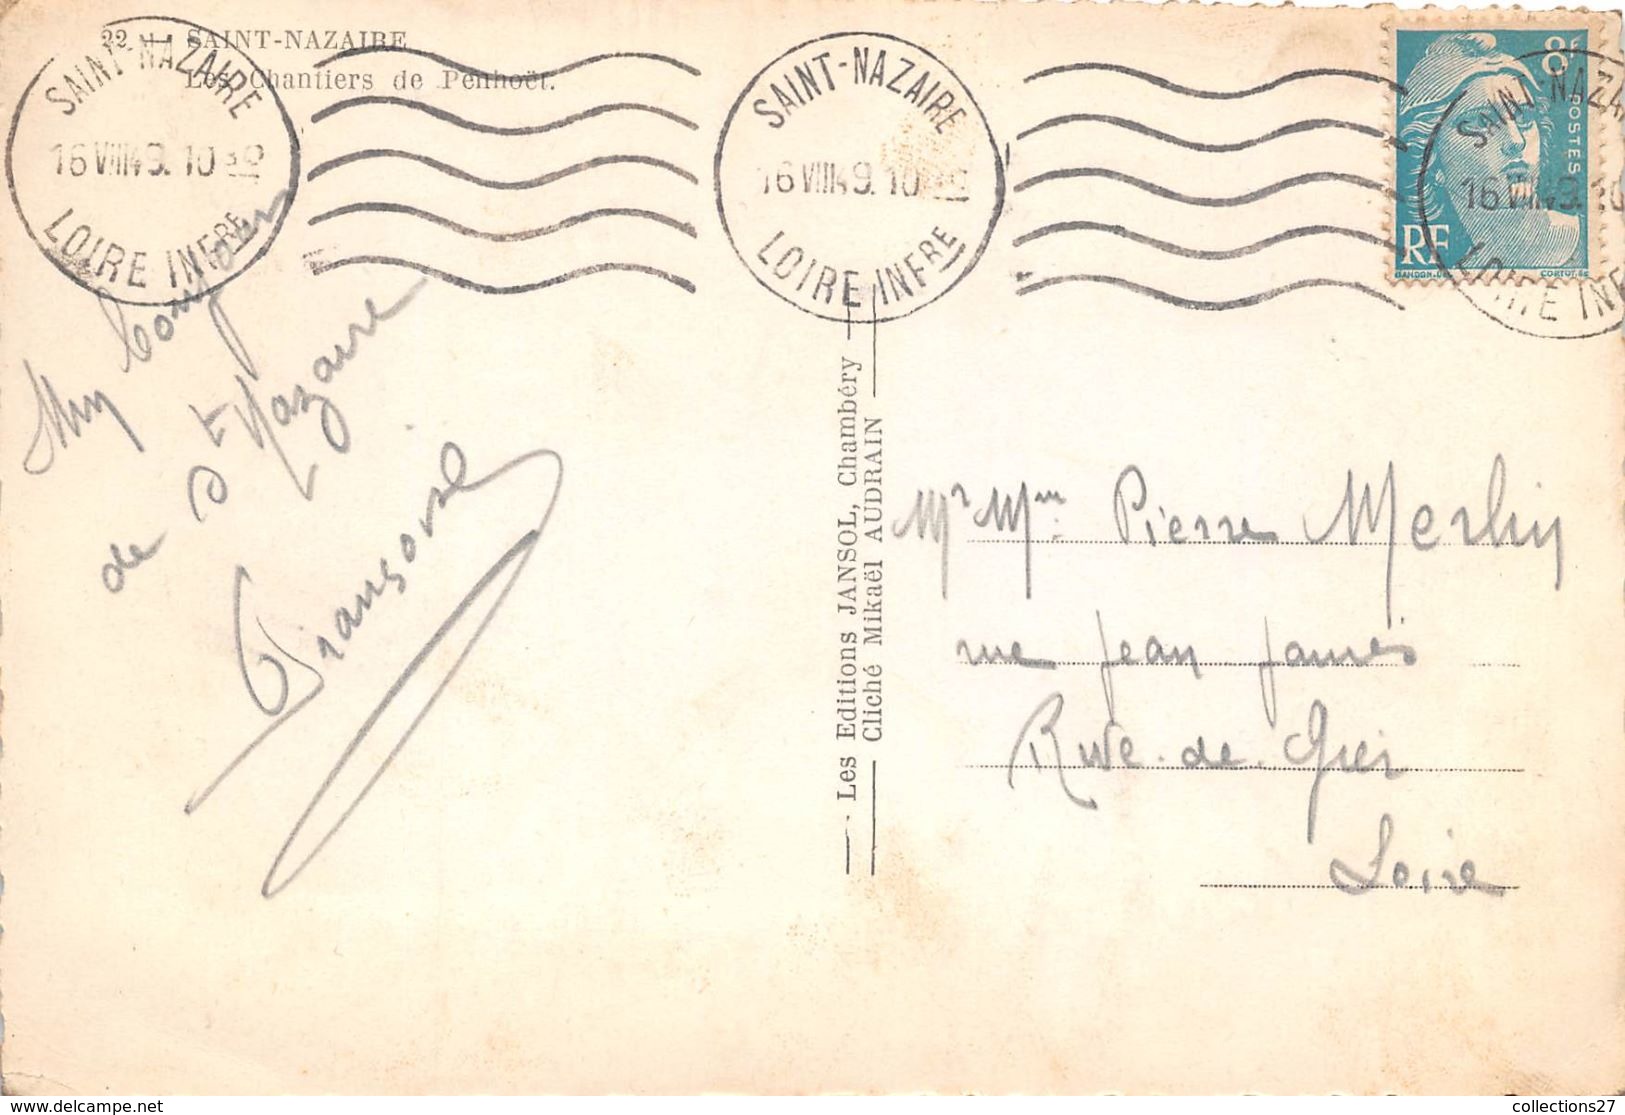 22 — SAINT-NAZAIRE
Les Chantiers de Penhoët.
SAINT-NAZAIRE
16 VIII 49. 10 30
LOIRE INFRE
SAINT-NAZAIRE
16 VIII 49. 10
LOIRE INFRE
8F
POSTES
RF
GANDON.DEL
CORTOT.SC
SAINT-NAZA
16 VIII 49. 10
LOIRE INF
bonjour
de St Nazaire
Françoise
Les Editions JANSOL, Chambéry
Cliché Mikaël AUDRAIN
Mr Mme Pierre Merlin
rue Jean Jaurès
Rive-de-Gier
Loire
collections27